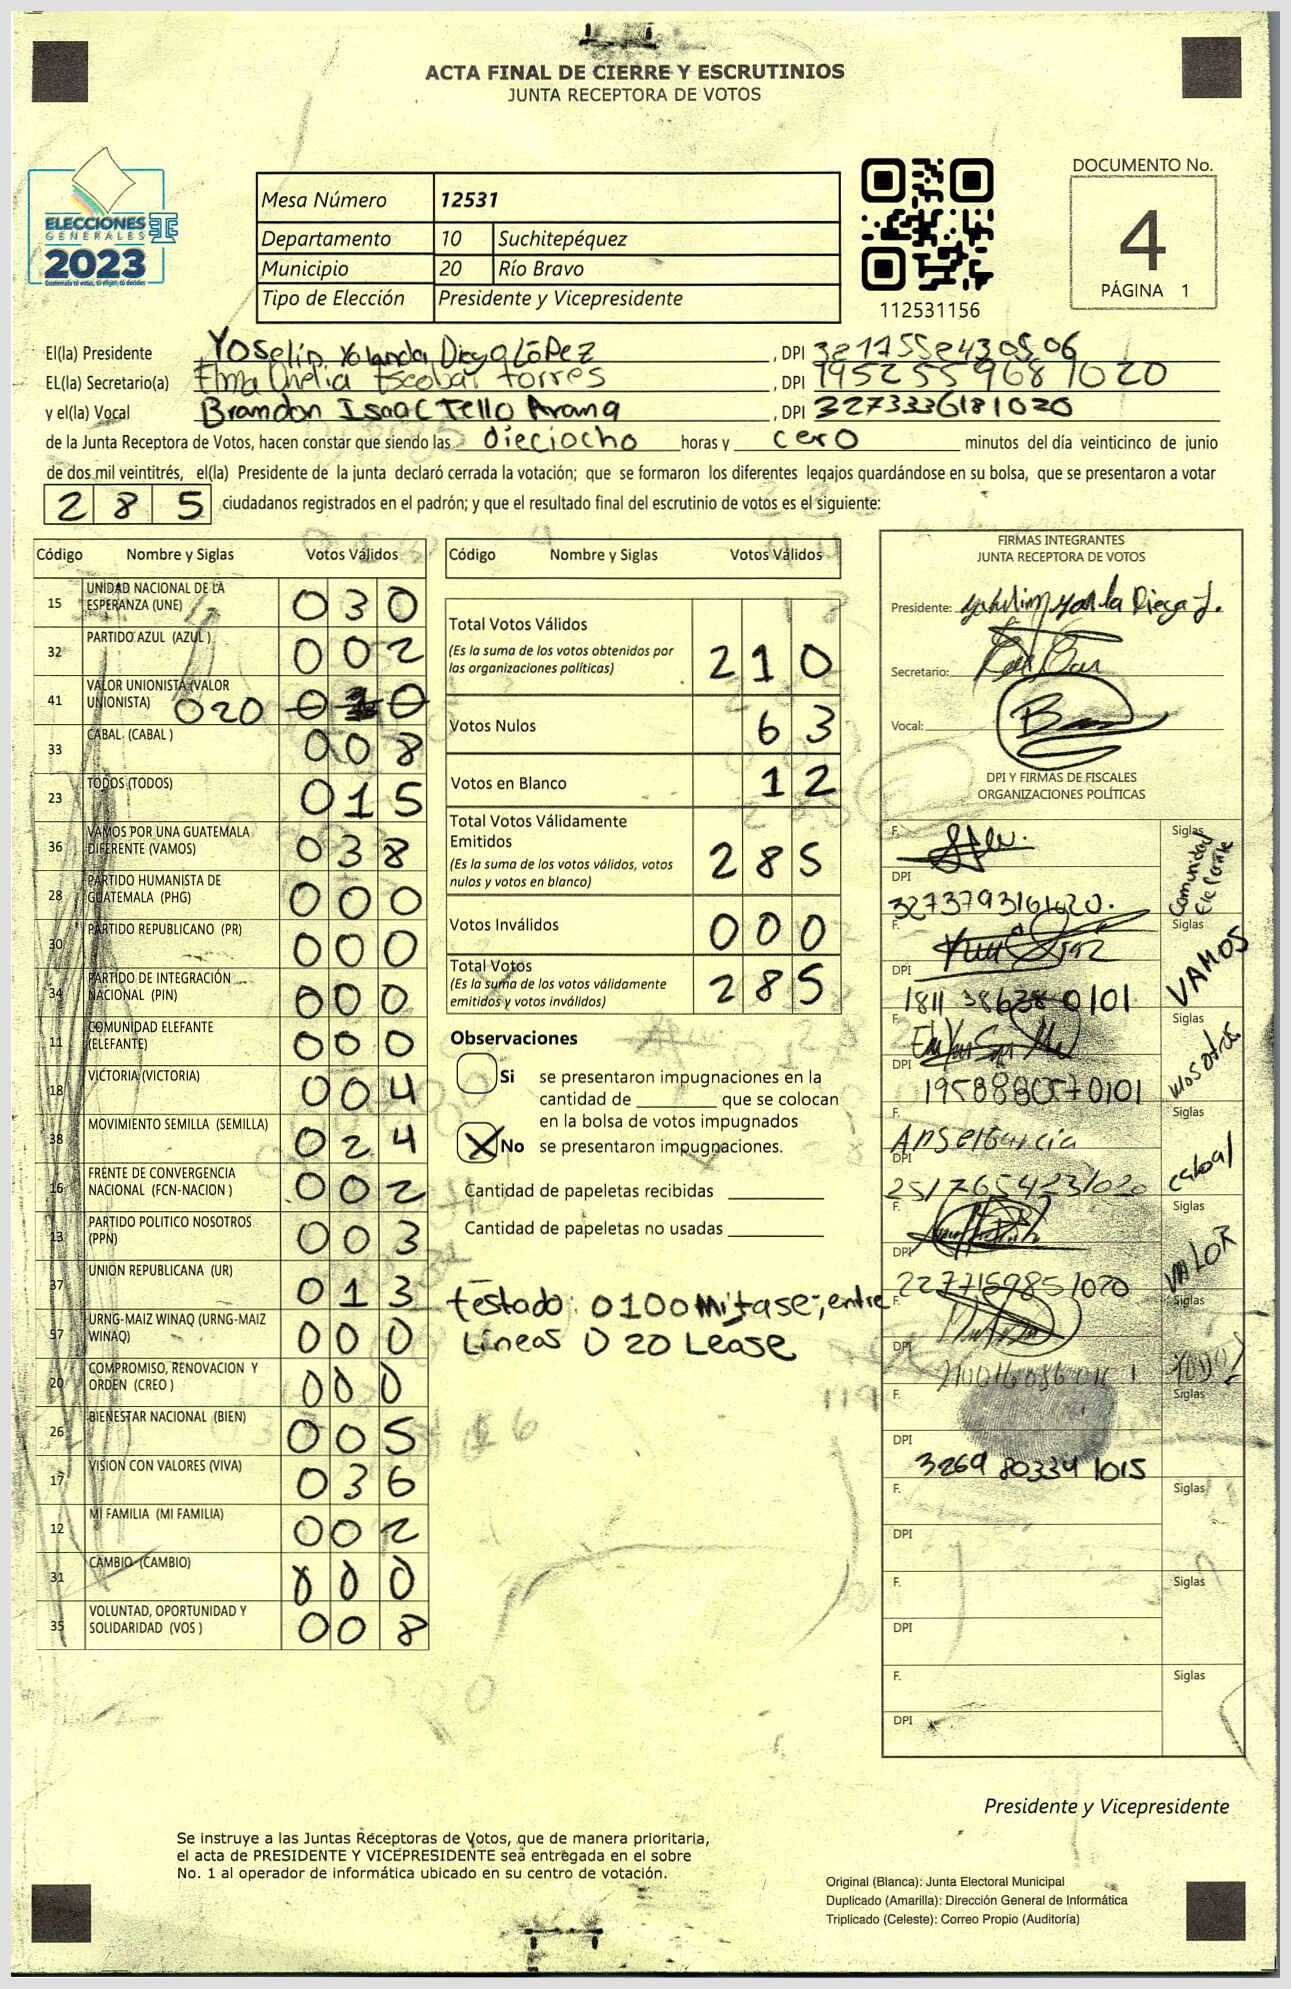 ACTA FINAL DE CIERRE Y ESCRUTINIOS
JUNTA RECEPTORA DE VOTOS
ELECCIONES
GENERALES
2023
Guatemala tú votas, tú eliges, tú decides
Mesa Número 12531
Departamento 10 Suchitepéquez
Municipio 20 Río Bravo
Tipo de Elección Presidente y Vicepresidente
112531156
DOCUMENTO No.
4
PÁGINA 1
El(la) Presidente Yoselin Yolanda Diego LóPez , DPI 3217552430506
EL(la) Secretario(a) Elma Ohelia Escobar Torres , DPI 1952559681020
y el(la) Vocal Brandon Isaac Tello Arana , DPI 3273336181020
de la Junta Receptora de Votos, hacen constar que siendo las dieciocho horas y cero minutos del día veinticinco de junio
de dos mil veintitrés, el(la) Presidente de la junta declaró cerrada la votación; que se formaron los diferentes legajos quardándose en su bolsa, que se presentaron a votar
285 ciudadanos registrados en el padrón; y que el resultado final del escrutinio de votos es el siguiente:
Código Nombre y Siglas Votos Válidos
15 UNIDAD NACIONAL DE LA ESPERANZA (UNE) 030
32 PARTIDO AZUL (AZUL ) 002
41 VALOR UNIONISTA (VALOR UNIONISTA) 020 010
33 CABAL (CABAL ) 008
23 TODOS (TODOS) 015
36 VAMOS POR UNA GUATEMALA DIFERENTE (VAMOS) 038
28 PARTIDO HUMANISTA DE GUATEMALA (PHG) 000
30 PARTIDO REPUBLICANO (PR) 000
34 PARTIDO DE INTEGRACIÓN NACIONAL (PIN) 000
11 COMUNIDAD ELEFANTE (ELEFANTE) 000
18 VICTORIA (VICTORIA) 004
38 MOVIMIENTO SEMILLA (SEMILLA) 024
16 FRENTE DE CONVERGENCIA NACIONAL (FCN-NACION ) 002
13 PARTIDO POLITICO NOSOTROS (PPN) 003
37 UNION REPUBLICANA (UR) 013
57 URNG-MAIZ WINAQ (URNG-MAIZ WINAQ) 000
20 COMPROMISO, RENOVACION Y ORDEN (CREO ) 000
26 BIENESTAR NACIONAL (BIEN) 005
17 VISION CON VALORES (VIVA) 036
12 MI FAMILIA (MI FAMILIA) 002
31 CAMBIO (CAMBIO) 000
35 VOLUNTAD, OPORTUNIDAD Y SOLIDARIDAD (VOS ) 008
Código Nombre y Siglas Votos Válidos
Total Votos Válidos
(Es la suma de los votos obtenidos por
las organizaciones políticas) 210
Votos Nulos 63
Votos en Blanco 12
Total Votos Válidamente
Emitidos
(Es la suma de los votos válidos, votos
nulos y votos en blanco) 285
Votos Inválidos 000
Total Votos
(Es la suma de los votos válidamente
emitidos y votos inválidos) 285
Observaciones
Si se presentaron impugnaciones en la
cantidad de ________ que se colocan
en la bolsa de votos impugnados
X No se presentaron impugnaciones.
Cantidad de papeletas recibidas
Cantidad de papeletas no usadas
testado: 0100mitase; entre
Líneas 020 Lease
FIRMAS INTEGRANTES
JUNTA RECEPTORA DE VOTOS
Presidente:
Secretario:
Vocal:
DPI Y FIRMAS DE FISCALES
ORGANIZACIONES POLÍTICAS
F. Siglas Comunidad Elefante
DPI
3273793161020.
F. Siglas VAMOS
DPI
1811 38638 0101
F. Siglas Nosotros
DPI
1958880570101
F. Siglas cabal
DPI
2517654231020
F. Siglas VALOR
DPI
2277159851020
F. Siglas TODOS
DPI
F. Siglas
DPI
3269 80334 1015
F. Siglas
DPI
F. Siglas
DPI
F. Siglas
DPI
Presidente y Vicepresidente
Se instruye a las Juntas Receptoras de Votos, que de manera prioritaria,
el acta de PRESIDENTE Y VICEPRESIDENTE sea entregada en el sobre
No. 1 al operador de informática ubicado en su centro de votación.
Original (Blanca): Junta Electoral Municipal
Duplicado (Amarilla): Dirección General de Informática
Triplicado (Celeste): Correo Propio (Auditoría)